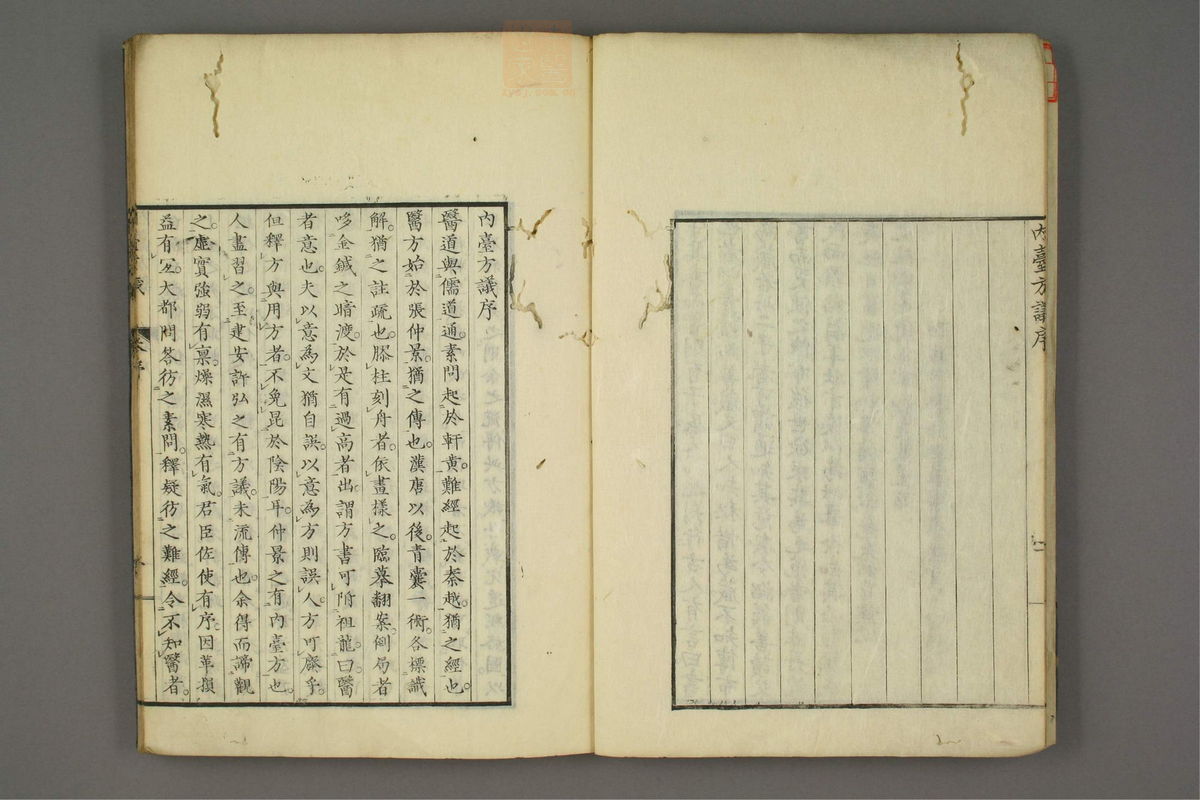 內臺方議序
內臺方議序
醫道與儒道通。素問起於軒黃。難經起於秦越。猶之經也。
醫方始於張仲景。猶之傳也。漢唐以後。青囊一術。各標識
解。猶之註疏也。膠柱刻舟者。依畫樣之。臨摹翻案。倒局者
哆金鍼之暗渡。於是有過高者出。謂方書可附祖龍。曰。醫
者意也。夫以意為文。猶自誤。以意為方。則誤人。方可廢乎。
但釋方與用方者。不免昆於陰陽耳。仲景之有內臺方也。
人盡習之。至建安許弘之有方議。未流傳也。余得而諦觀
之。虛實強弱有稟。燥濕寒熱有氣。君臣佐使有序。因革損
益有宜。大都問答彷之素問。釋疑彷之難經。令不知醫者。